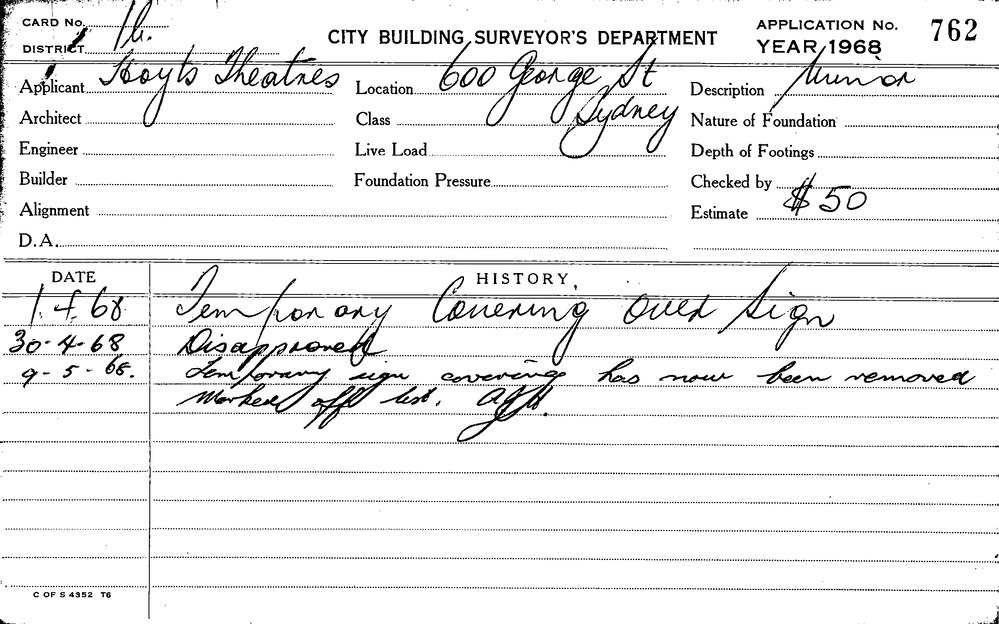 CARD No.
DISTRICT
CITY BUILDING SURVEYOR'S DEPARTMENT
APPLICATION No. 762
YEAR 1968
Applicant Hoyts Theatres
Location 600 George St
Sydney
Description Minor
Architect
Class
Nature of Foundation
Engineer
Live Load
Depth of Footings
Builder
Foundation Pressure
Checked by
Alignment
Estimate $50
D.A.
DATE HISTORY
1.4.68 Temporary Covering over Sign
30-4-68 Disapproved
9-5-68. Temporary sign covering has now been removed
Marked off list.
C OF S 4352 T6